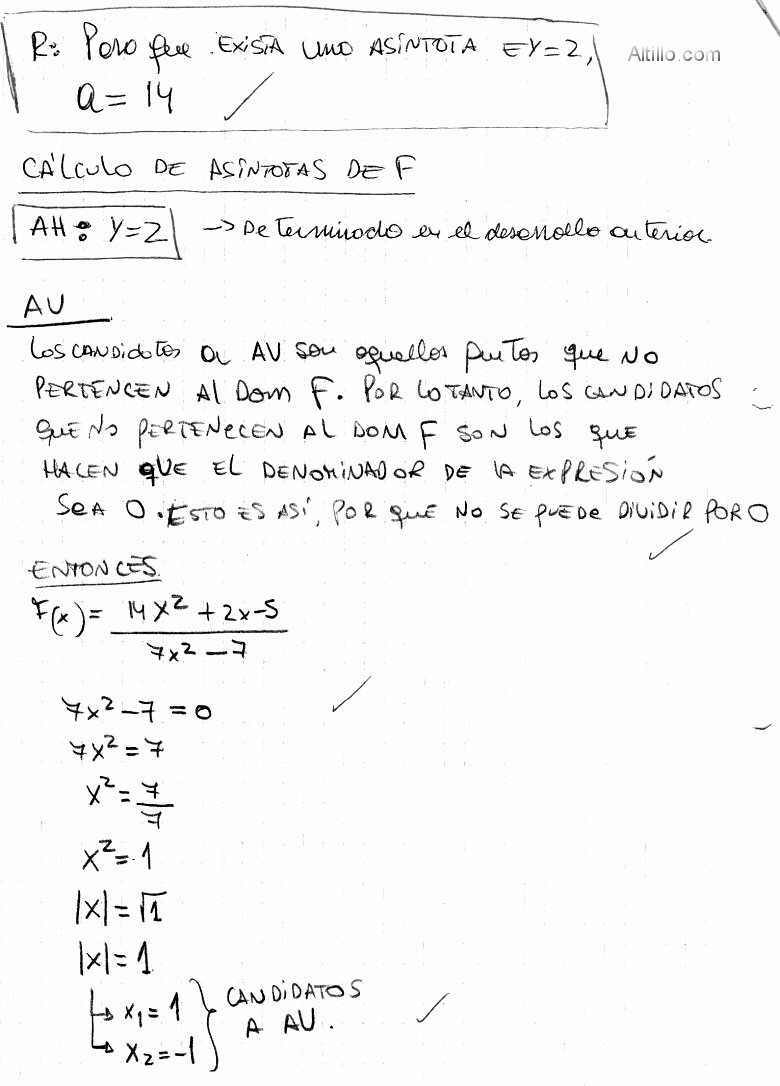 R: Para que EXISTA UNA ASÍNTOTA EY=2,
Altillo.com
a = 14
CÁLCULO DE ASÍNTOTAS DE F
AH: Y=2 -> Determinado en el desarrollo anterior.
AV
Los CANDidatos a AV son aquellos puntos que NO
PERTENCEN Al Dom F. POR LO TANTO, LOS CANDIDATOS
QUE NO PERTENECEN AL DOM F SON LOS QUE
HACEN QUE EL DENOMINADOR DE LA EXPRESIÓN
SEA 0. ESTO ES ASÍ, POR QUE NO SE PUEDE DIVIDIR POR 0
ENTONCES
F(x) = 14x² + 2x - 5
7x² - 7
7x² - 7 = 0
7x² = 7
x² = 7
7
x² = 1
|x| = √1
|x| = 1
x₁ = 1 CANDIDATOS
x₂ = -1 A AV.